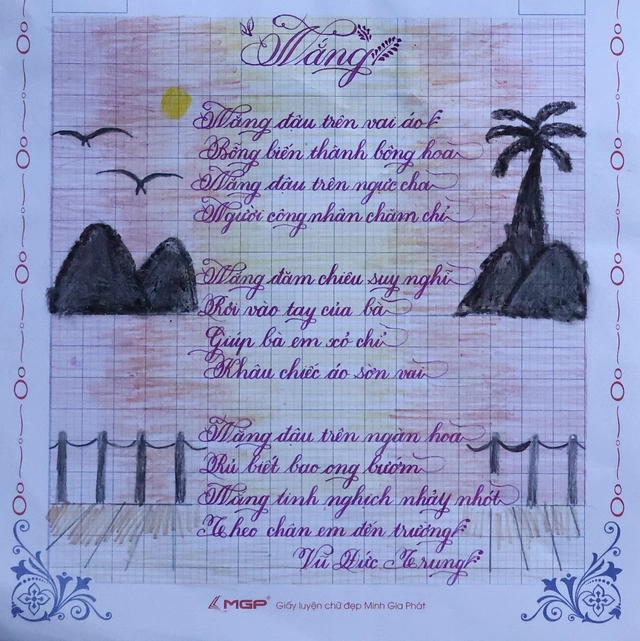 Nắng
Nắng đậu trên vai áo
Bỗng biến thành bông hoa
Nắng đậu trên ngực cha
Người công nhân chăm chỉ
Nắng đăm chiêu suy nghĩ
Rơi vào tay của bà
Giúp bà em xỏ chỉ
Khâu chiếc áo sờn vai
Nắng đậu trên ngàn hoa
Rủ biết bao ong bướm
Nắng tinh nghịch nhảy nhót
Theo chân em đến trường
Vũ Đức Trung
MGP Giấy luyện chữ đẹp Minh Gia Phát